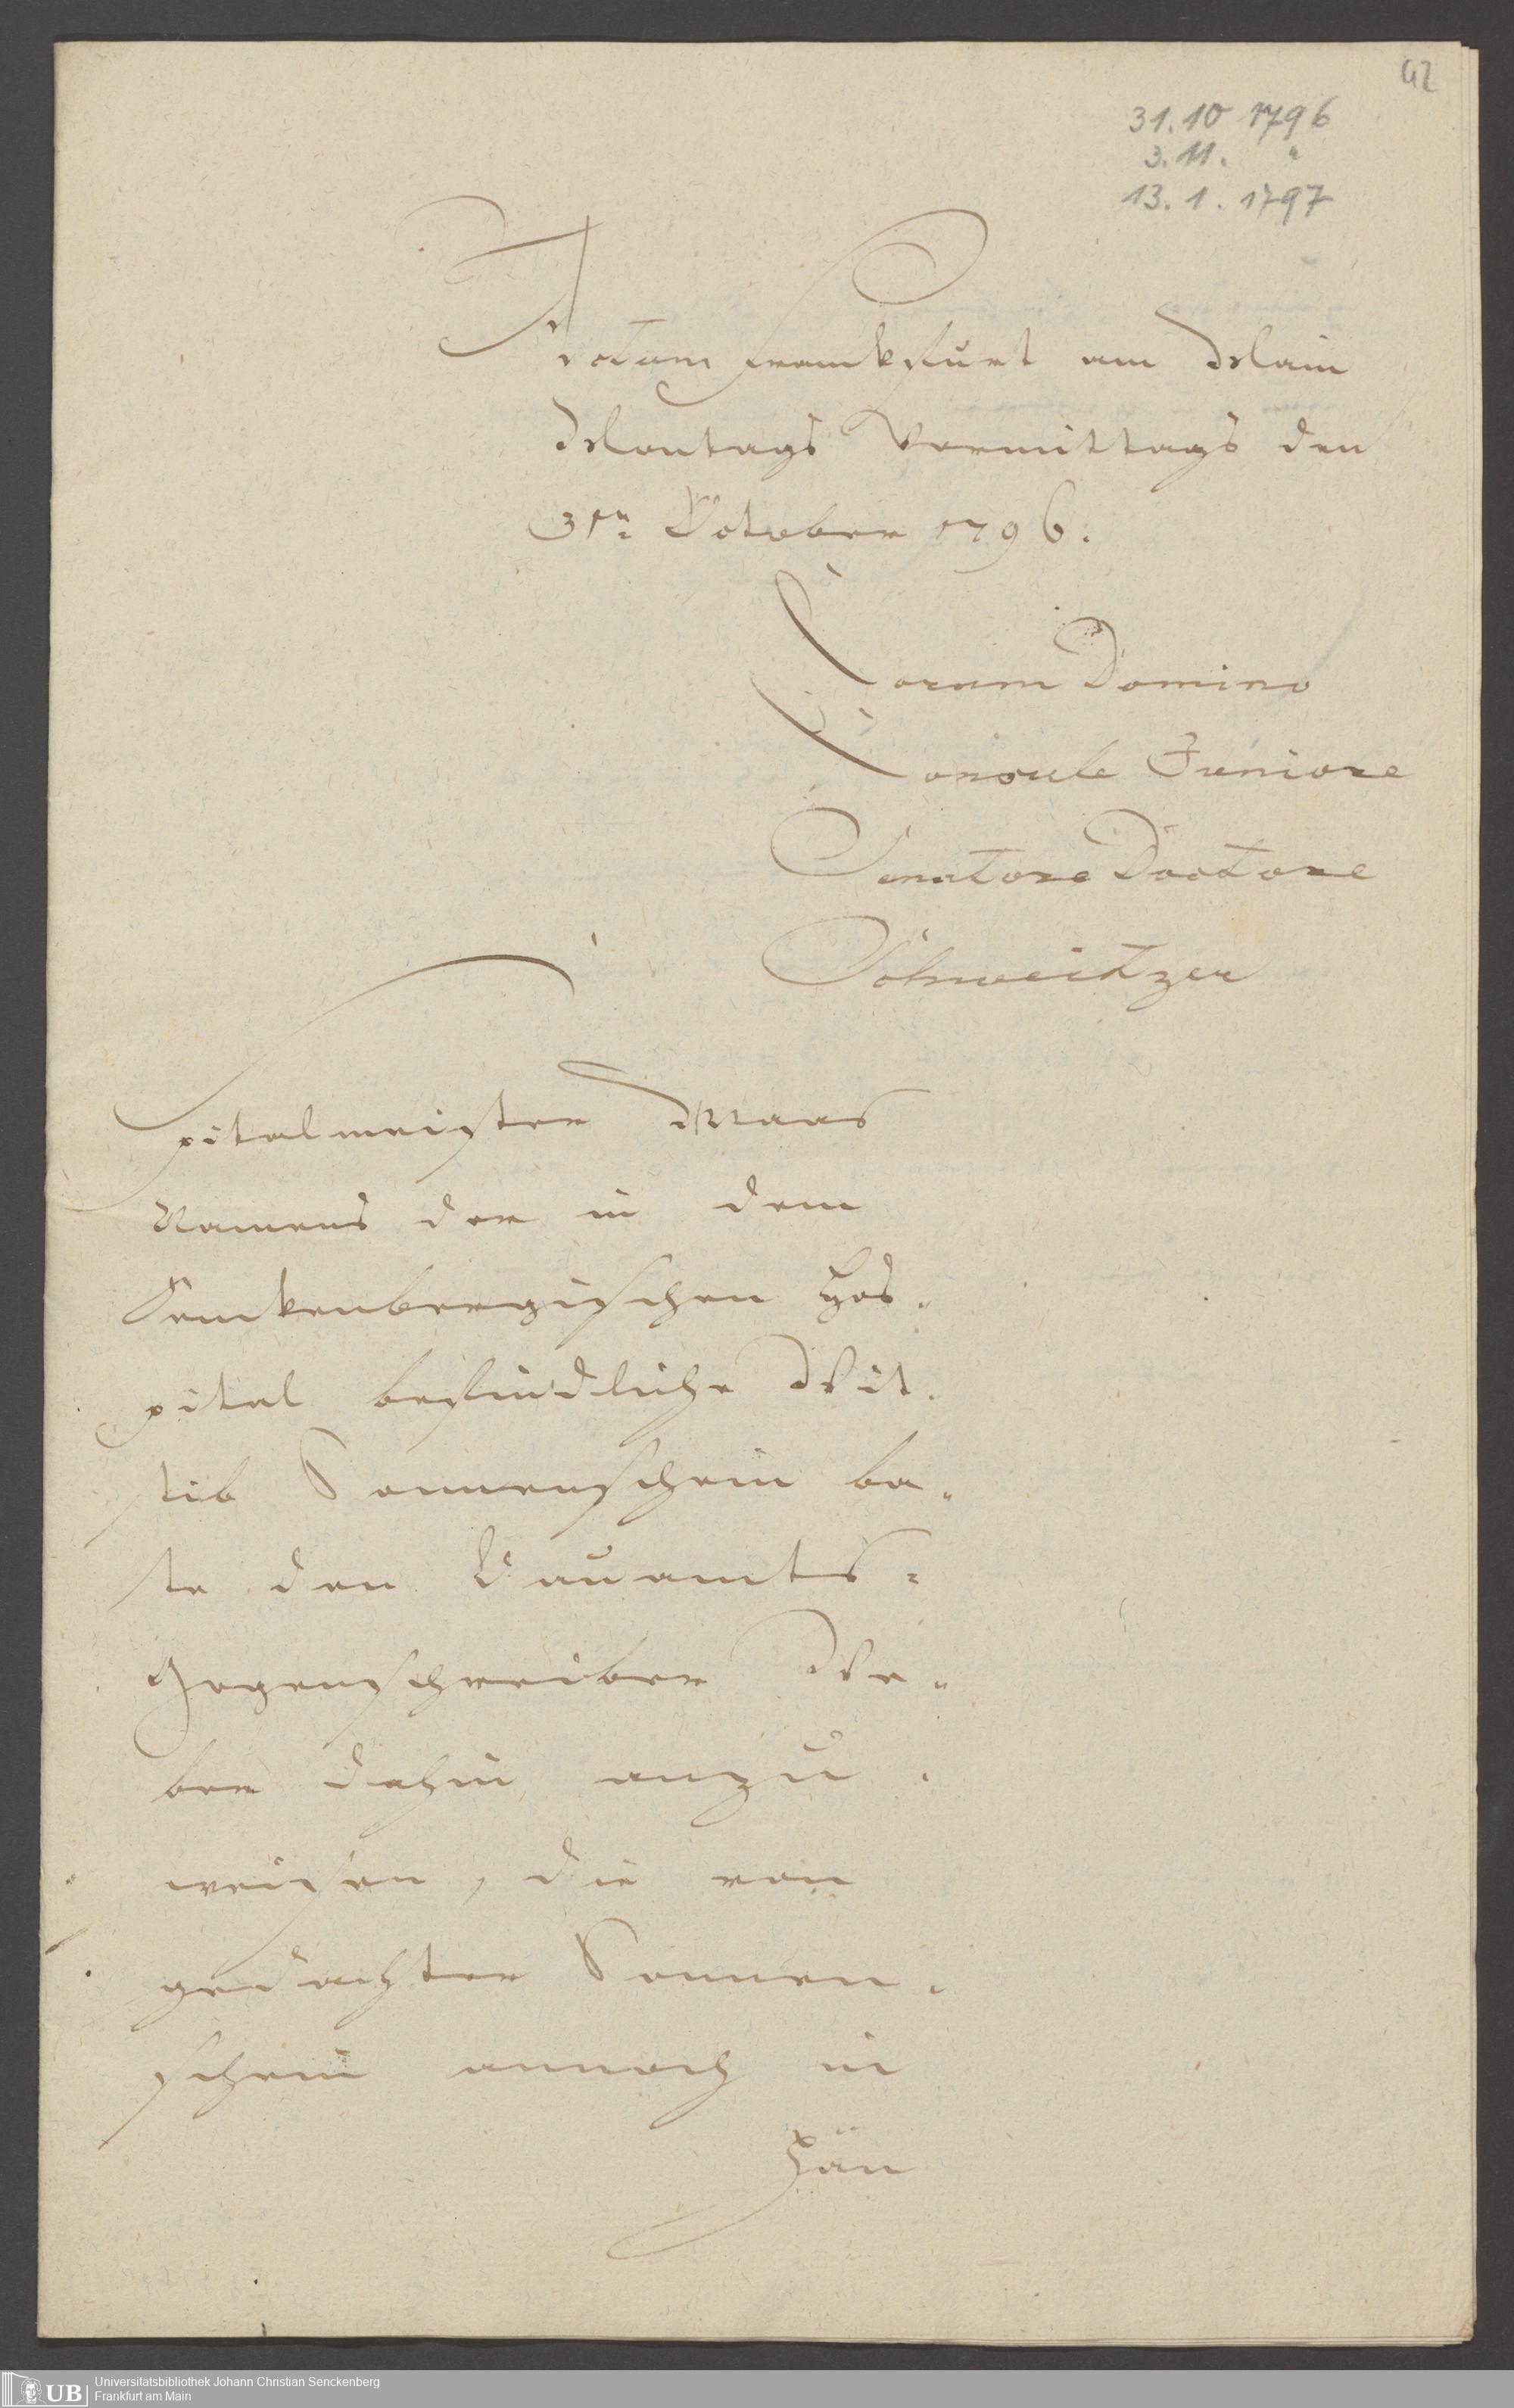 42
31.10 1796
3.11. "
13.1.1797
Actum Franckfurt am Main
Montags Vormittags den
31n: October 1796.
Coram Domino
Consule Juniore
Senatore Doctore
Schweitzer
Spitalmeister Maas
Namens der in dem
Senckenbergischen Hos-
pital befindliche Wit-
tib Sonnenschein ba-
te den Bauamts-
Gegenschreiber We-
ber dahin anzu-
weisen, die von
gedachter Sonnen-
schein annoch in
Hän
UB
Universitätsbibliothek Johann Christian Senckenberg
Frankfurt am Main